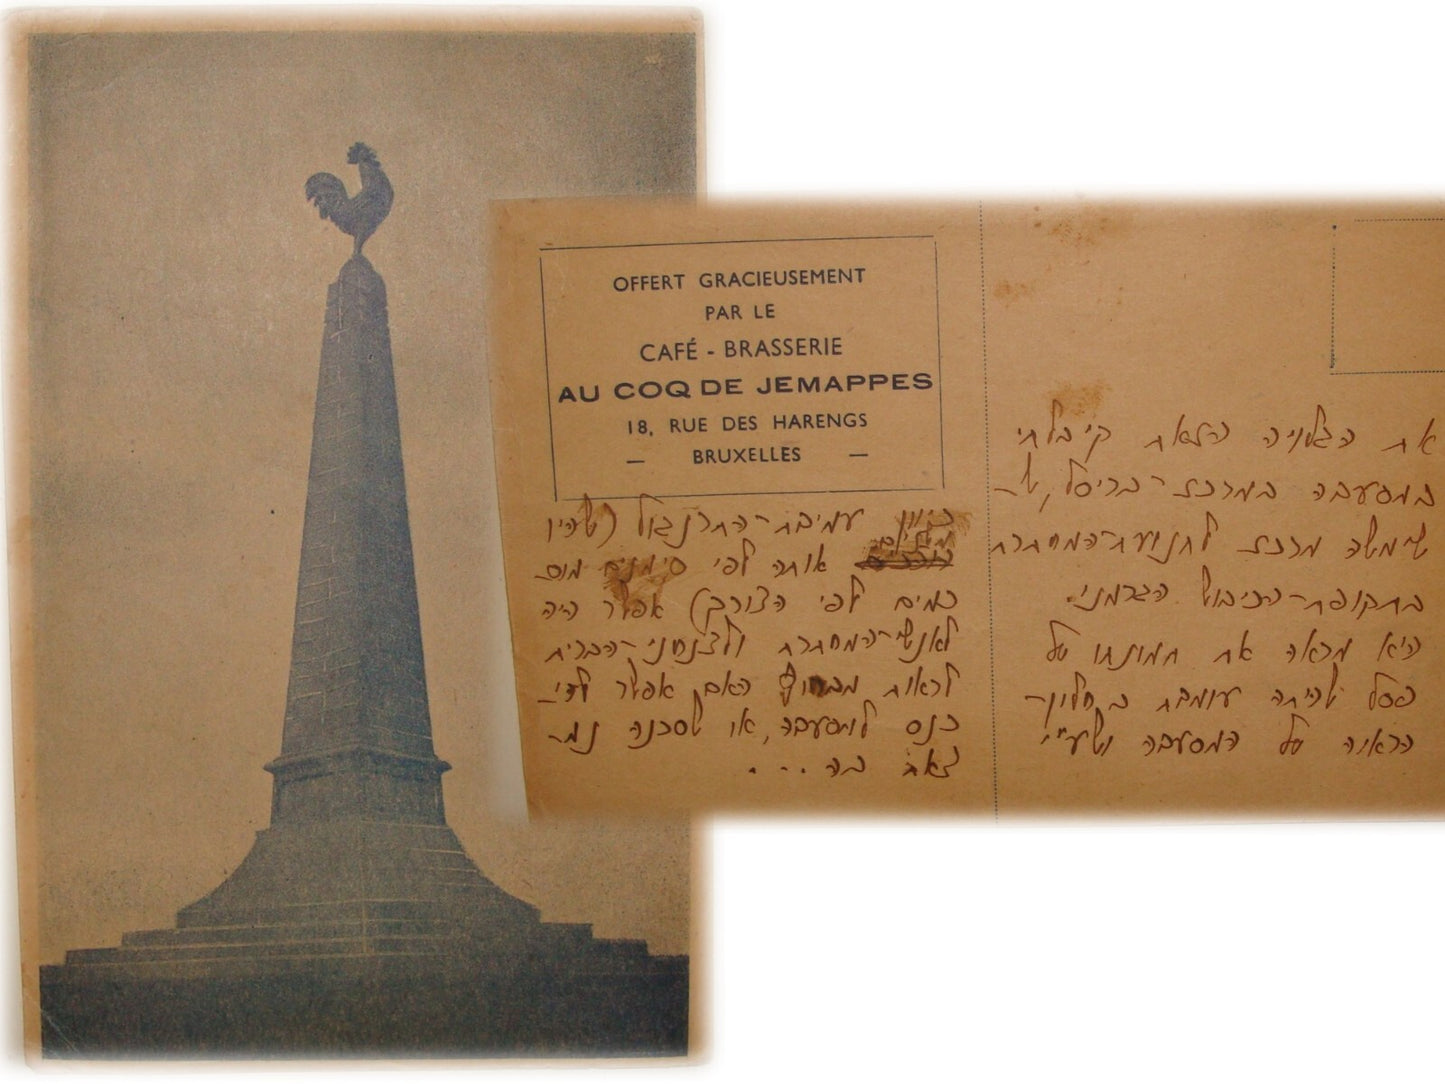 OFFERT GRACIEUSEMENT
PAR LE
CAFÉ - BRASSERIE
AU COQ DE JEMAPPES
18, RUE DES HARENGS
— BRUXELLES —
את הגלויה הזאת קיבלתי
במסעדה במרכז-בריסל, ש-
שימשה מרכז לתנועת-המחתרת
בתקופת-הכיבוש הגרמני.
היא מראה את תמונתו של
פסל שהיתה עומדת בחלון-
הראוה של המסעדה ושע"י
כיוון עמידת-התרנגול (שהיו
אותה לפי סימנים מוס-
כמים לפי הצורך) אפשר היה
לאנשי-המחתרת ולצנחני-הברית
לראות מבחוץ האם אפשר להי-
כנס למסעדה, או שסכנה נמ-
צאת בה...